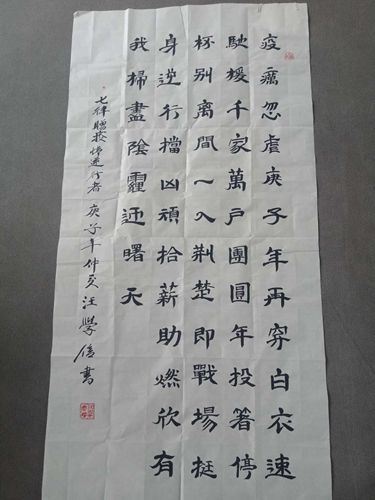 疫癘忽虐庚子年再穿白衣速
馳援千家萬戶團圓年投箸停
杯别離間一入荆楚即戰場挺
身逆行擋凶頑拾薪助燃欣有
我掃盡陰霾迎曙天
七律贈疫情逆行者 庚子年仲夏 汪學書